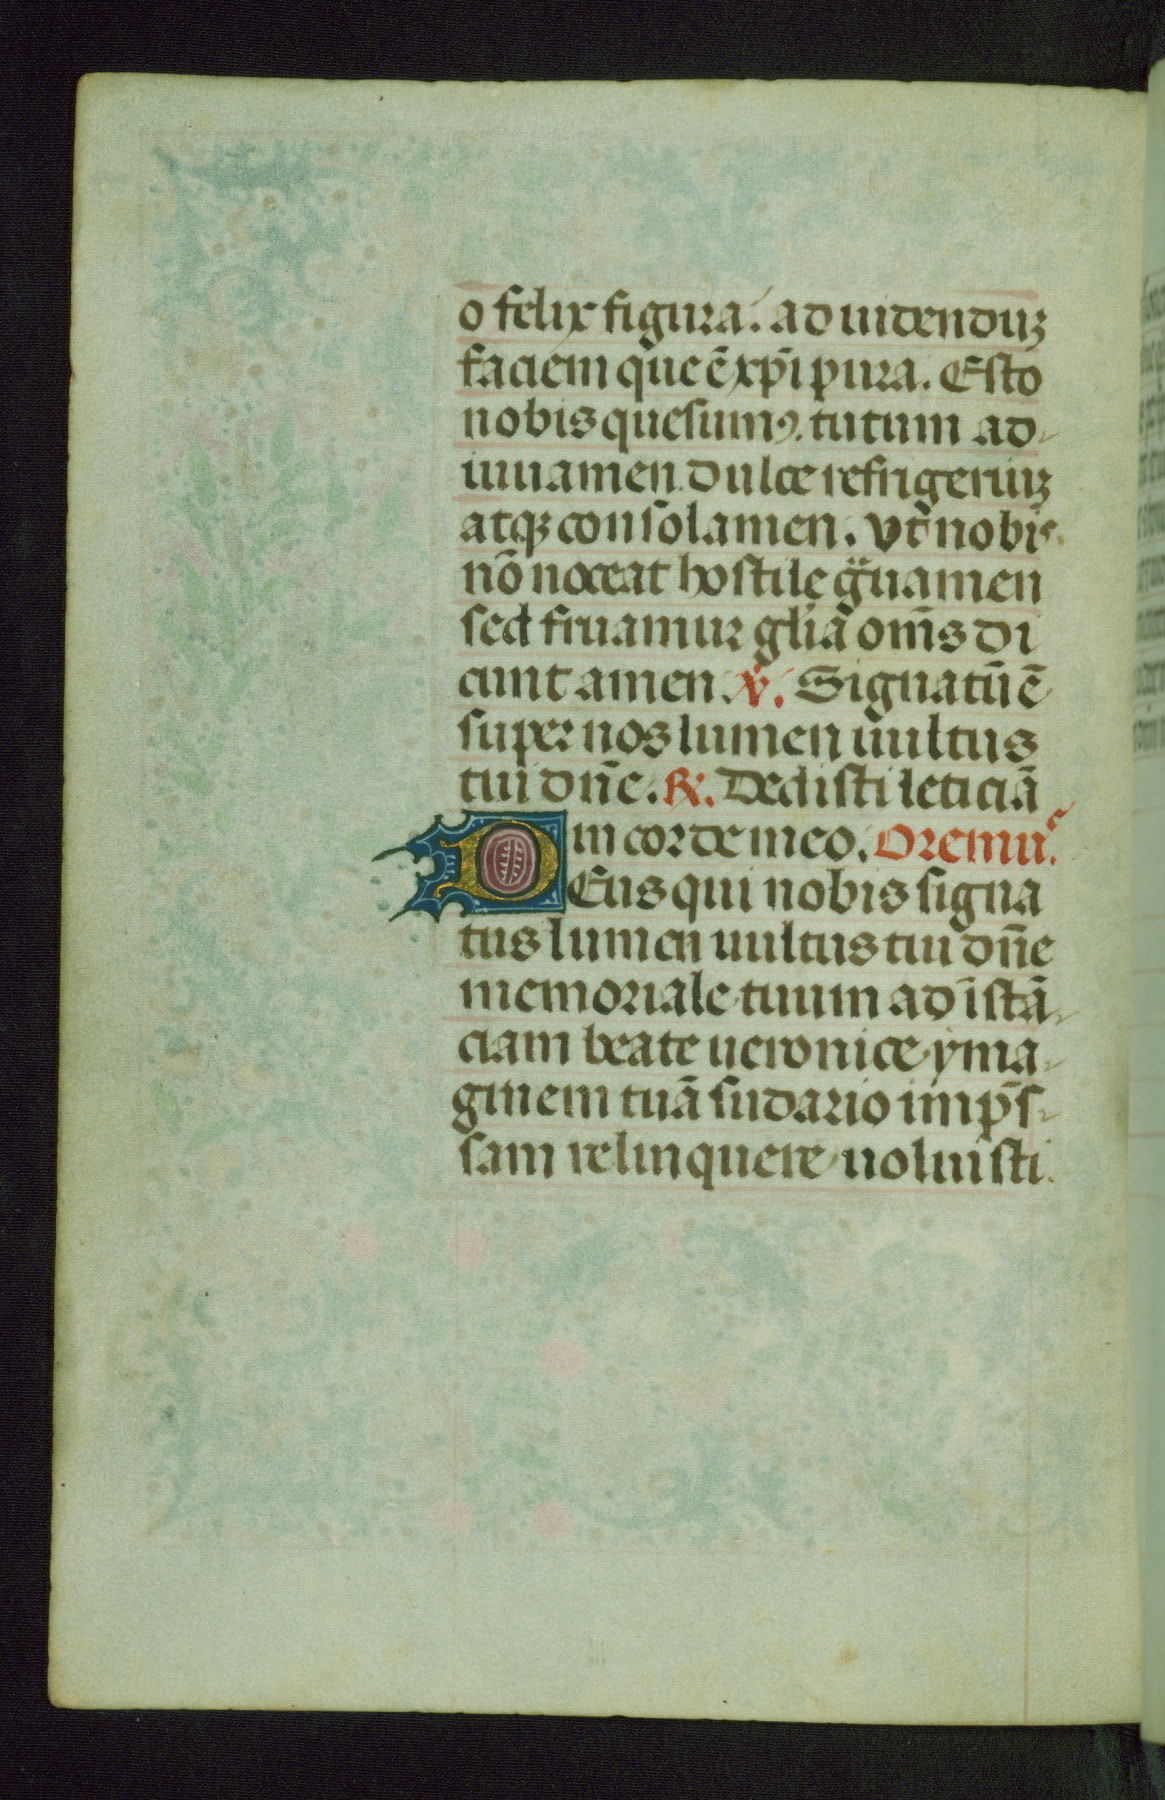 o felix figura. ad uidenduꝫ
faciem que ē xp̄i pura. Esto
nobis quesumꝰ. tutum ad
iuuamen dulce refrigeriuꝫ
atqꝫ consolamen. vt nobis
nō noceat hostile g̃uamen
sed fruamur gl̄ia om̄s di
cunt amen. ℣. Signatū ē
super nos lumen uultus
tui dn̄e. ℟. Dedisti leticiā
in corde meo. Oremus.
DEus qui nobis signa
tus lumen uultus tui dn̄e
memoriale tuum ad īstā
ciam beate ueronice yma
ginem tuā sudario imp̄s
sam relinquere uoluisti.